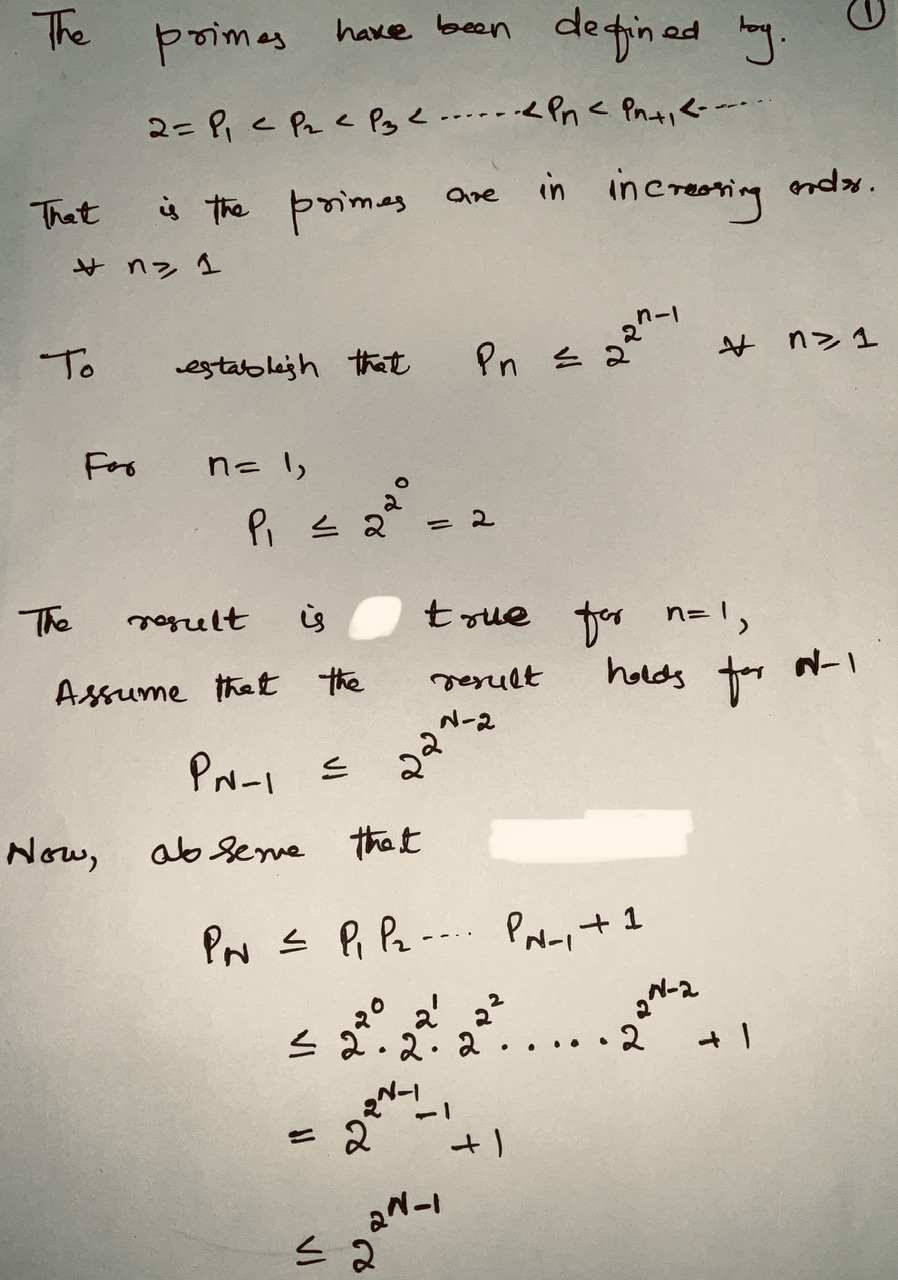 The primes have been defined by. ①
2 = P₁ < P₂ < P₃ < ------< Pn < Pn+1 <------
That is the primes are in increasing order.
∀ n ≥ 1
To establish that Pn ≤ 2^2^n-1 ∀ n ≥ 1
For n = 1,
P₁ ≤ 2^2^0 = 2
The result is true for n=1,
Assume that the result holds for N-1
P_N-1 ≤ 2^2^N-2
Now, observe that
P_N ≤ P₁ P₂ ---- P_N-1 + 1
≤ 2^2^0 . 2^2^1 . 2^2^2 ..... 2^2^N-2 + 1
= 2^(2^N-1 - 1) + 1
≤ 2^2^N-1